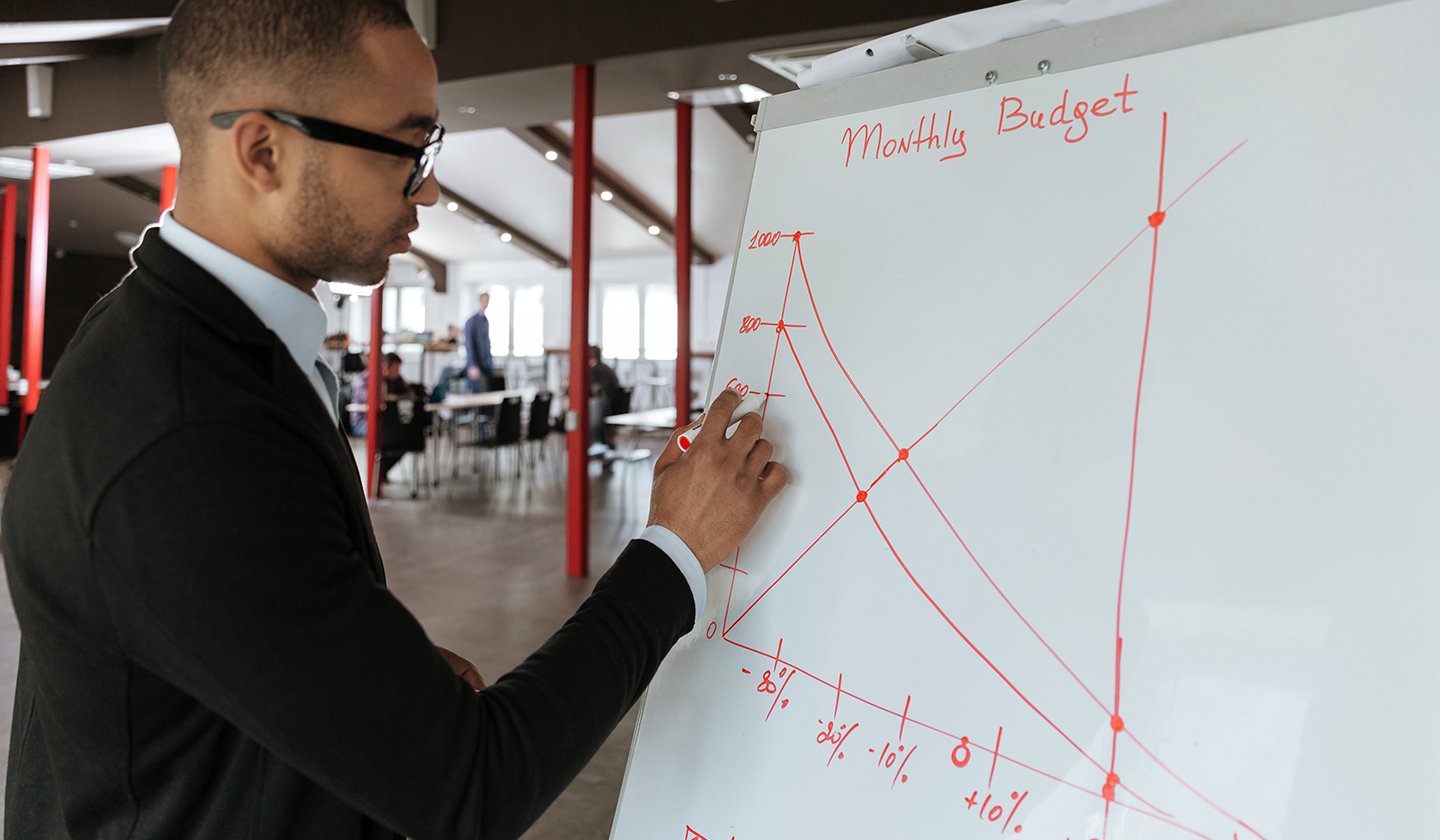 Monthly Budget
1000
800
600
0
-80%
-20%
-10%
0
+10%